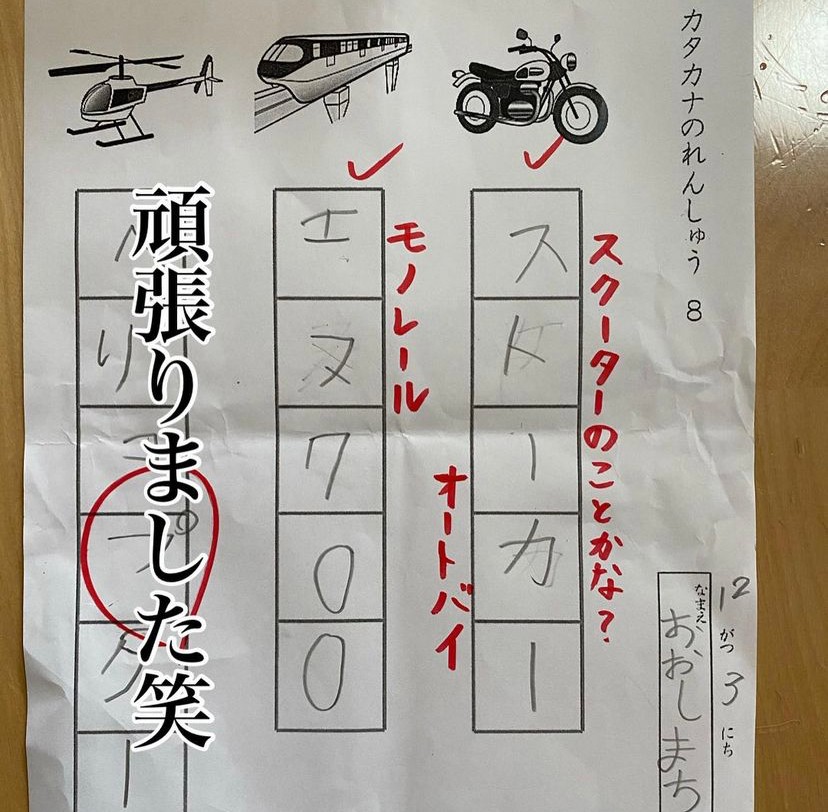 カタカナのれんしゅう 8
12がつ3にち
なまえ おおしまち
スクーターのことかな?
スケーカー
オートバイ
モノレール
エヌ700
ヘリコプター
頑張りました笑